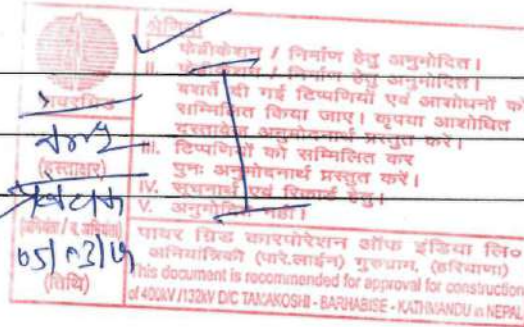 श्रेणियां
I. फेब्रीकेशन / निर्माण हेतु अनुमोदित।
II. फेब्रीकेशन / निर्माण हेतु अनुमोदित।
बशर्ते दी गई टिप्पणियों एवं आशोधनों को
सम्मिलित किया जाए। कृपया आशोधित
दस्तावेज अनुमोदनार्थ प्रस्तुत करें।
III. टिप्पणियों को सम्मिलित कर
पुनः अनुमोदनार्थ प्रस्तुत करें।
IV. सूचनार्थ एवं रिकार्ड हेतु।
V. अनुमोदित नहीं।
पावरग्रिड
(हस्ताक्षर)
(तिथि)
पावर ग्रिड कारपोरेशन ऑफ इंडिया लि०
अभियांत्रिकी (पारे.लाईन) गुरुग्राम, (हरियाणा)
This document is recommended for approval for construction
of 400kV /132kV D/C TAMAKOSHI - BARHABISE - KATHMANDU in NEPAL